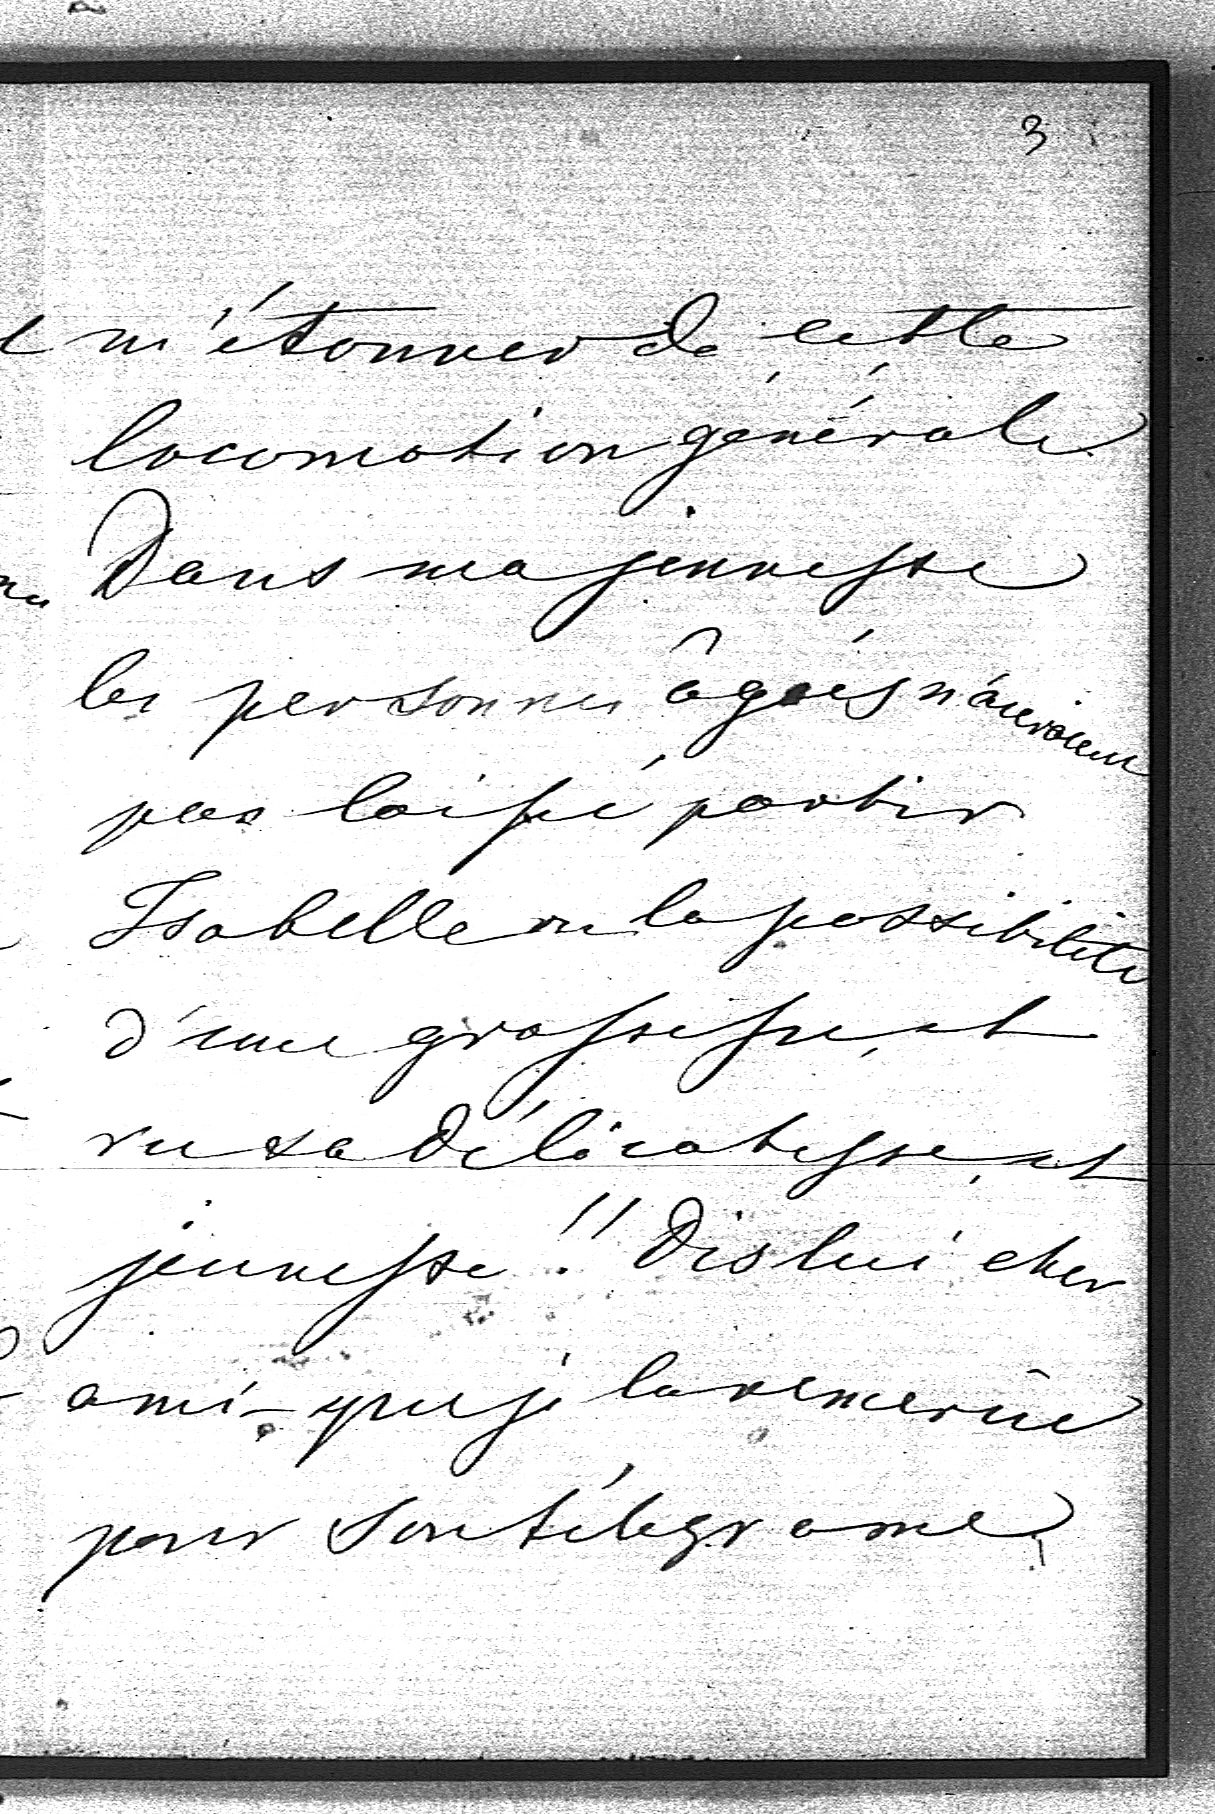 3
m'étonner de cette
locomotion générale
Dans ma jeunesse
les personnes âgées n'auroient
pas laissé partir
Isabelle vu la possibilité
d'une grossesse, et
vu sa délicatesse, et
jeunesse !! Dis lui cher
ami – que je la remercie
pour son télégrame,